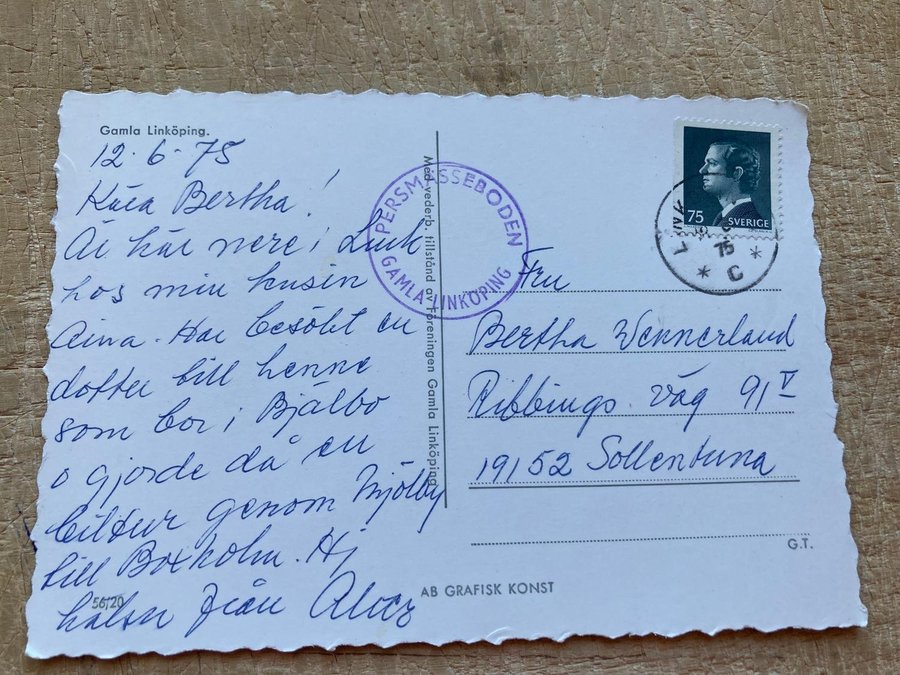 Gamla Linköping.
12.6.75
Kära Bertha!
Är här nere i Link
hos min kusin
Aina. Har besökt en
dotter till henne
som bor i Bjälbo
o gjorde då en
biltur genom Mjölby
till Boxholm. Hj
hälsn från
56/20
Med vederb. tillstånd av Föreningen Gamla Linköping
PERSMÄSSEBODEN
GAMLA LINKÖPING
75 SVERIGE
LINK
75
* C *
Fru
Bertha Wennerlund
Ribbings väg 91 V
19152 Sollentuna
G.T.
AB GRAFISK KONST